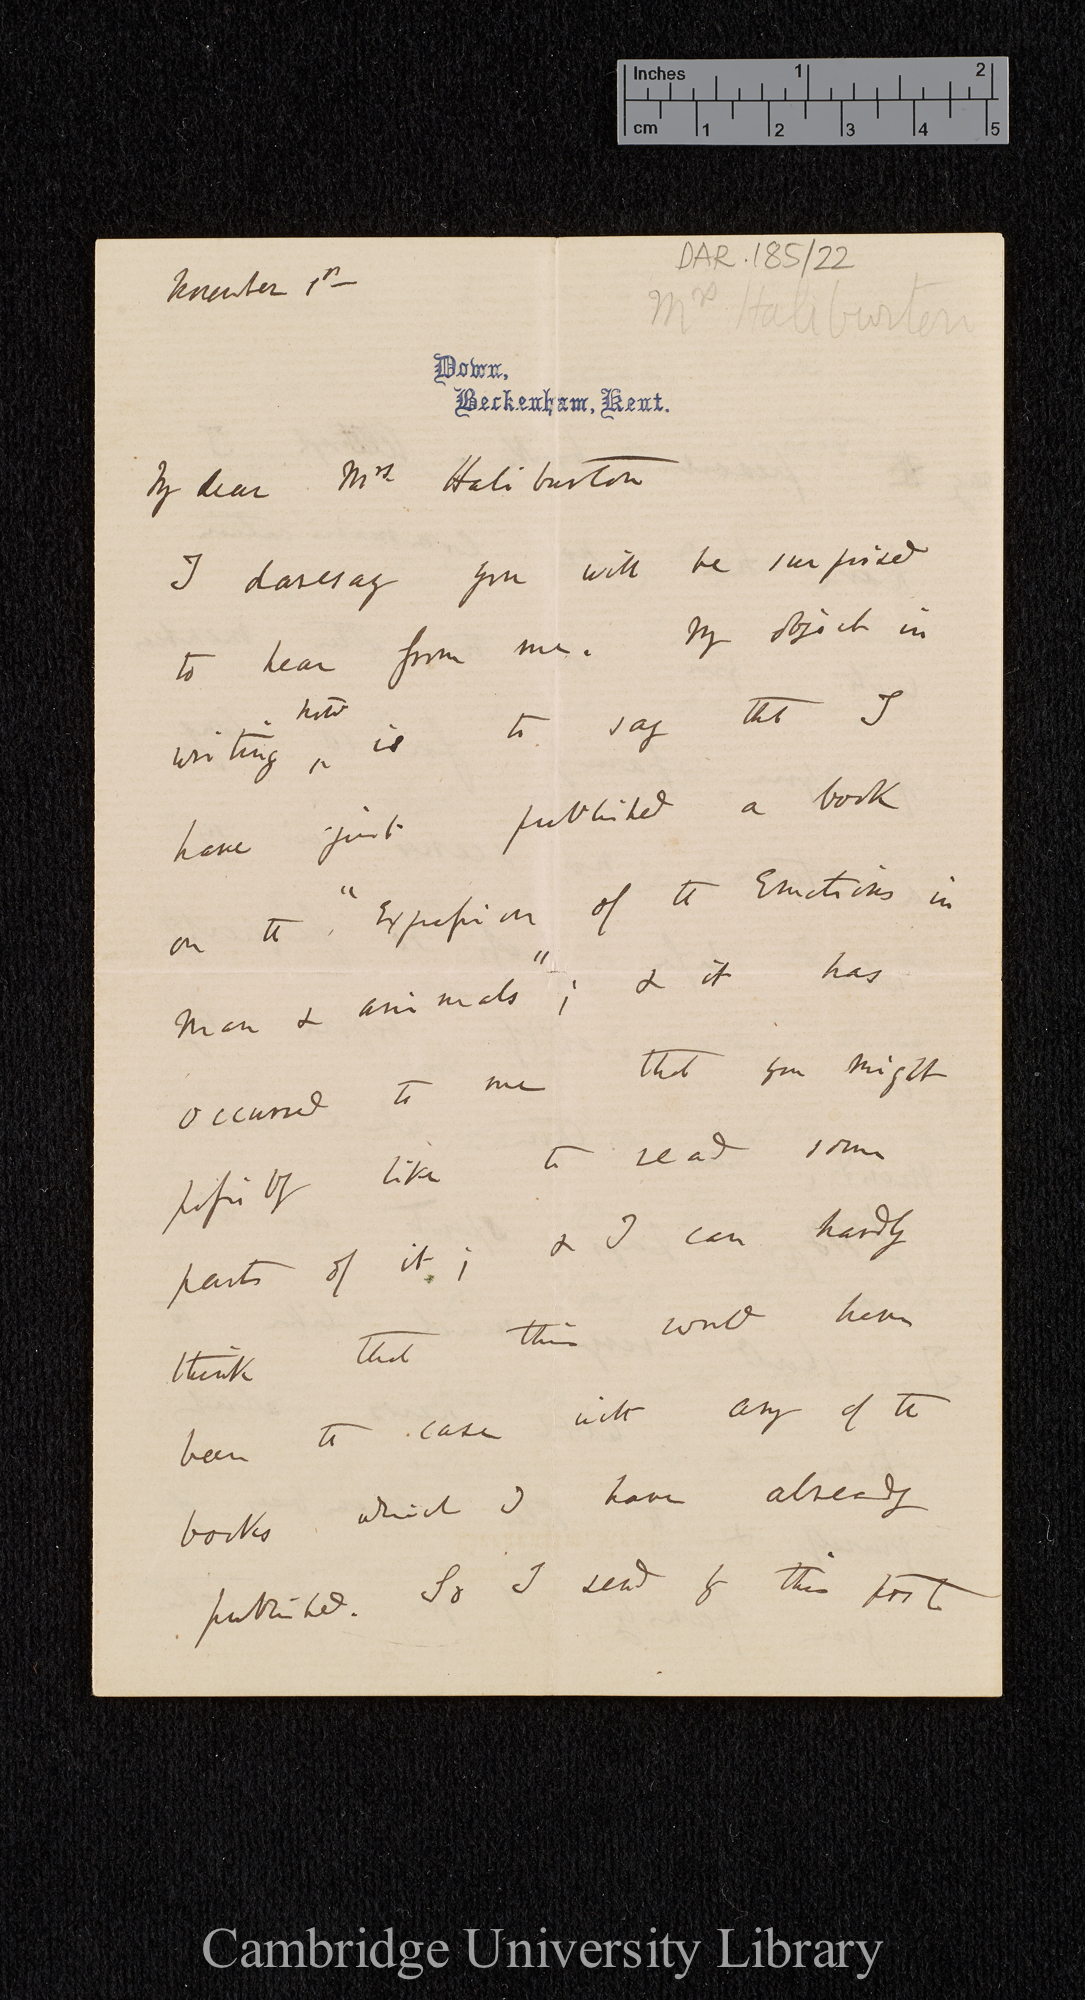 Inches 1 2
cm 1 2 3 4 5
DAR.185/22
Mrs Haliburton
November 1st
Down,
Beckenham, Kent.
My dear Mrs Haliburton
I daresay you will be surprised
to hear from me. My object in
writing now is to say that I
have just published a book
on the "Expression of the Emotions in
Man & animals"; & it has
occurred to me that you might
possibly like to read some
parts of it; & I can hardly
think that this would have
been the case with any of the
books which I have already
published. So I send by this post
Cambridge University Library